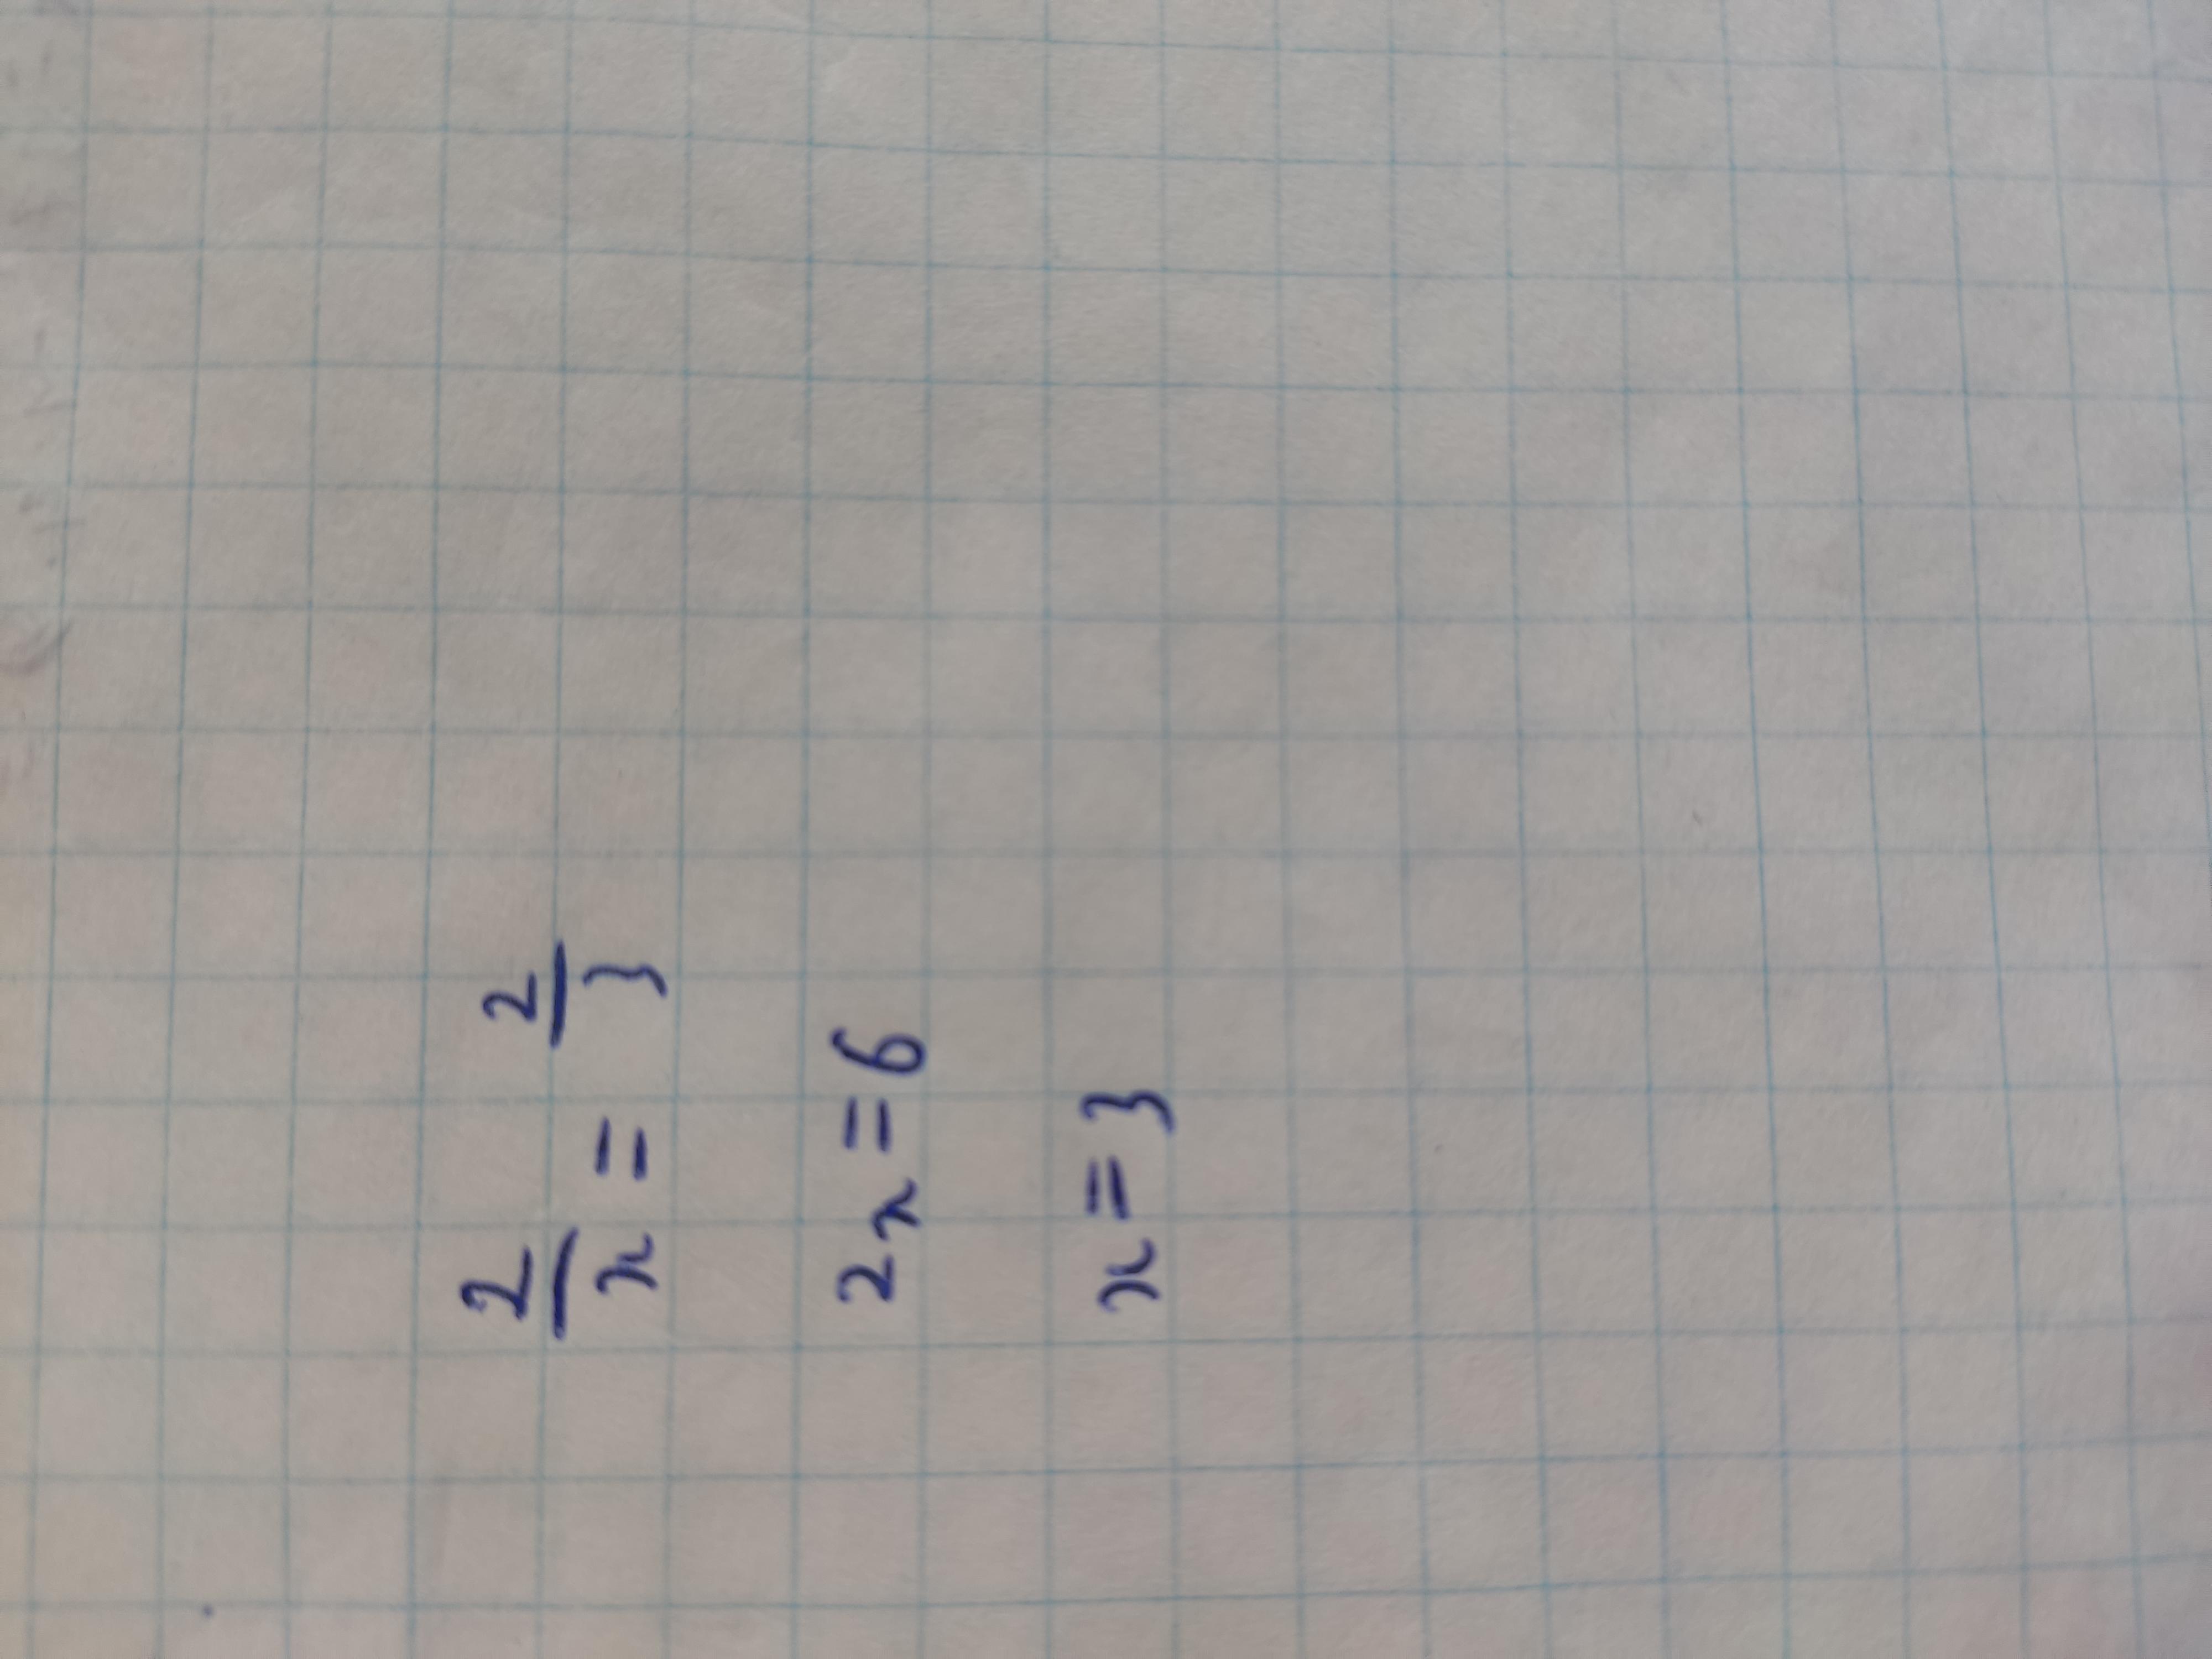 2/x = 2/3
2x = 6
x = 3